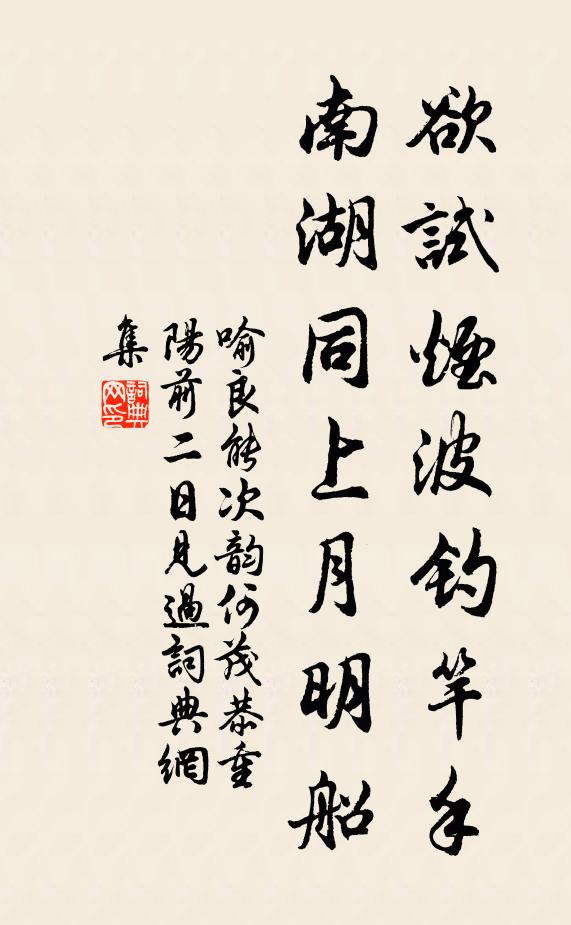 欲試煙波釣竿手
南湖同上月明船
喻良能次韵何茂恭重
陽前二日見過詞典網
集
詞典
网印